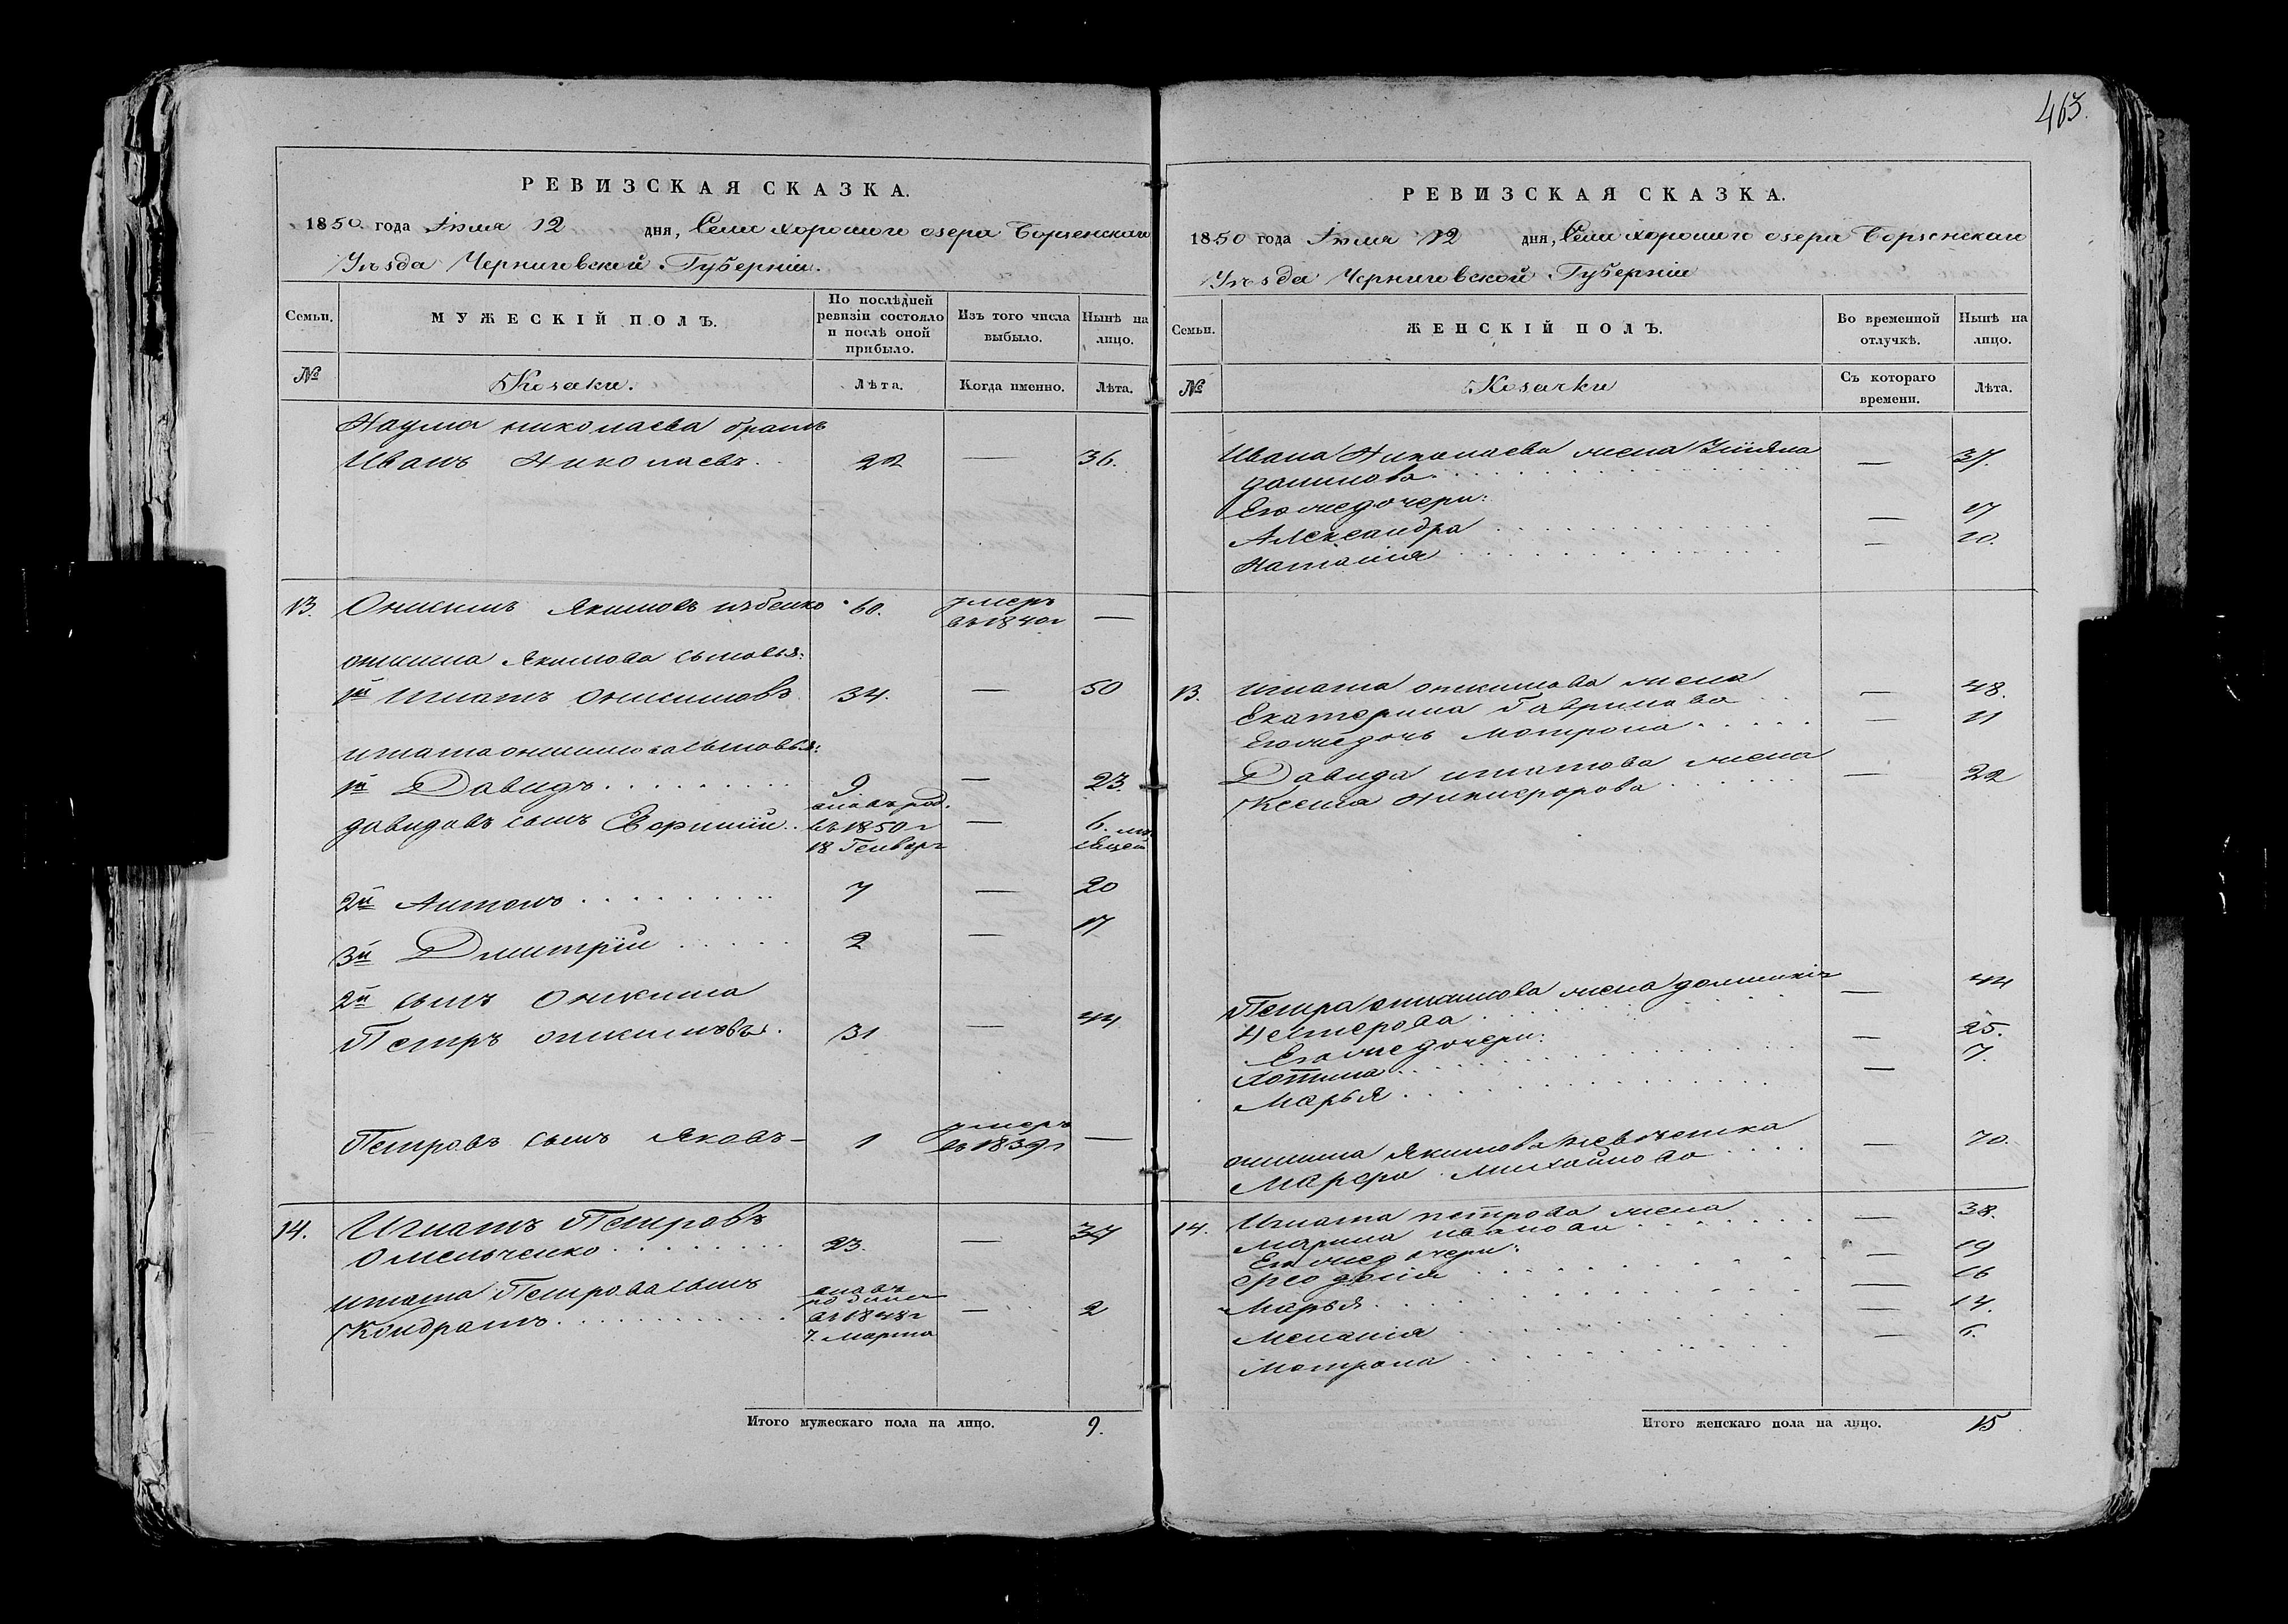 463.
РЕВИЗСКАЯ СКАЗКА.
1850 года Іюля 12 дня, Села хорошаго озера Борзенскаго
Уѣзда Черниговской Губерніи.
Семьи.
МУЖЕСКІЙ ПОЛЪ.
По послѣдней ревизіи состояло и послѣ оной прибыло.
Изъ того числа выбыло.
Нынѣ на лицо.
№
Козаки.
Лѣта.
Когда именно.
Лѣта.
Наума николаева братъ
Иванъ Николаевъ. 22 — 36.
13. Онисимъ Якимовъ 60. умеръ въ 1840г —
онисима Якимова сыновья:
1й Игнатъ Онисимовъ 34. — 50
игната онисимова сыновья:
1й Давидъ 9 — 23.
давидовъ сынъ 
вновь род. въ 1850г 18 Генваря — 6. мѣсяцей
2й Антонъ 7 — 20
3й Дмитрій 2 — 17
2й сынъ Онисима
Петръ онисимовъ. 31 — 44
Петровъ сынъ Яковъ — 1 умеръ въ 1839г —
14. Игнатъ Петровъ
Омельченко 23. — 37
игната Петрова сынъ
Кондратъ вновь родился въ 1848г 7. марта — 2
Итого мужескаго пола на лицо. 9.
РЕВИЗСКАЯ СКАЗКА.
1850 года Іюля 12 дня, Села хорошаго озера Борзенскаго
Уѣзда Черниговской Губерніи
Семьи.
ЖЕНСКІЙ ПОЛЪ.
Во временной отлучкѣ.
Нынѣ на лицо.
№
Козачки
Съ котораго времени.
Лѣта.
Ивана Николаева жена Уліяна — 37.
данилова
Его же дочери:
Александра — 17
Наталія — 10.
13. игната онисимова жена
Екатерина Гаврилова — 48.
Его же дочь мотрона — 11
Давида игнатова жена
Ксенія никифорова — 22
Петра онисимова жена домникія — 44
Нестерова
Его же дочери:
Хотина — 25.
Марья — 7.
онисима Якимова
Марфа Михайлова — 70.
14. Игната петрова жена
марина иванова — 38.
Его же дочери:
феодосія — 19
Марья — 16
Меланія — 14.
мотрона — 6.
Итого женскаго пола на лицо. 15